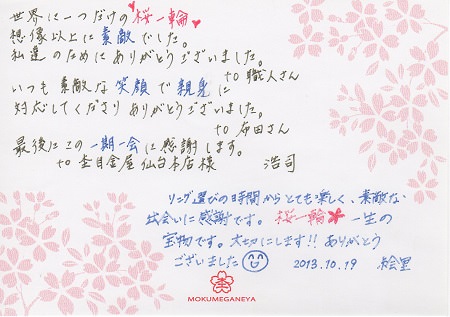 世界に一つだけの桜一輪
想像以上に素敵でした。
私達のためにありがとうございました。
to 職人さん
いつも素敵な笑顔で親身に
対応してくださりありがとうございました。
to 石田さん
最後にこの一期一会に感謝します。
to 杢目金屋 仙台本店様 浩司
リング選びの時間からとても楽しく、素敵な
出会いに感謝です。桜一輪 一生の
宝物です。大切にします!! ありがとう
ございました 2013.10.19 絵里
MOKUMEGANEYA